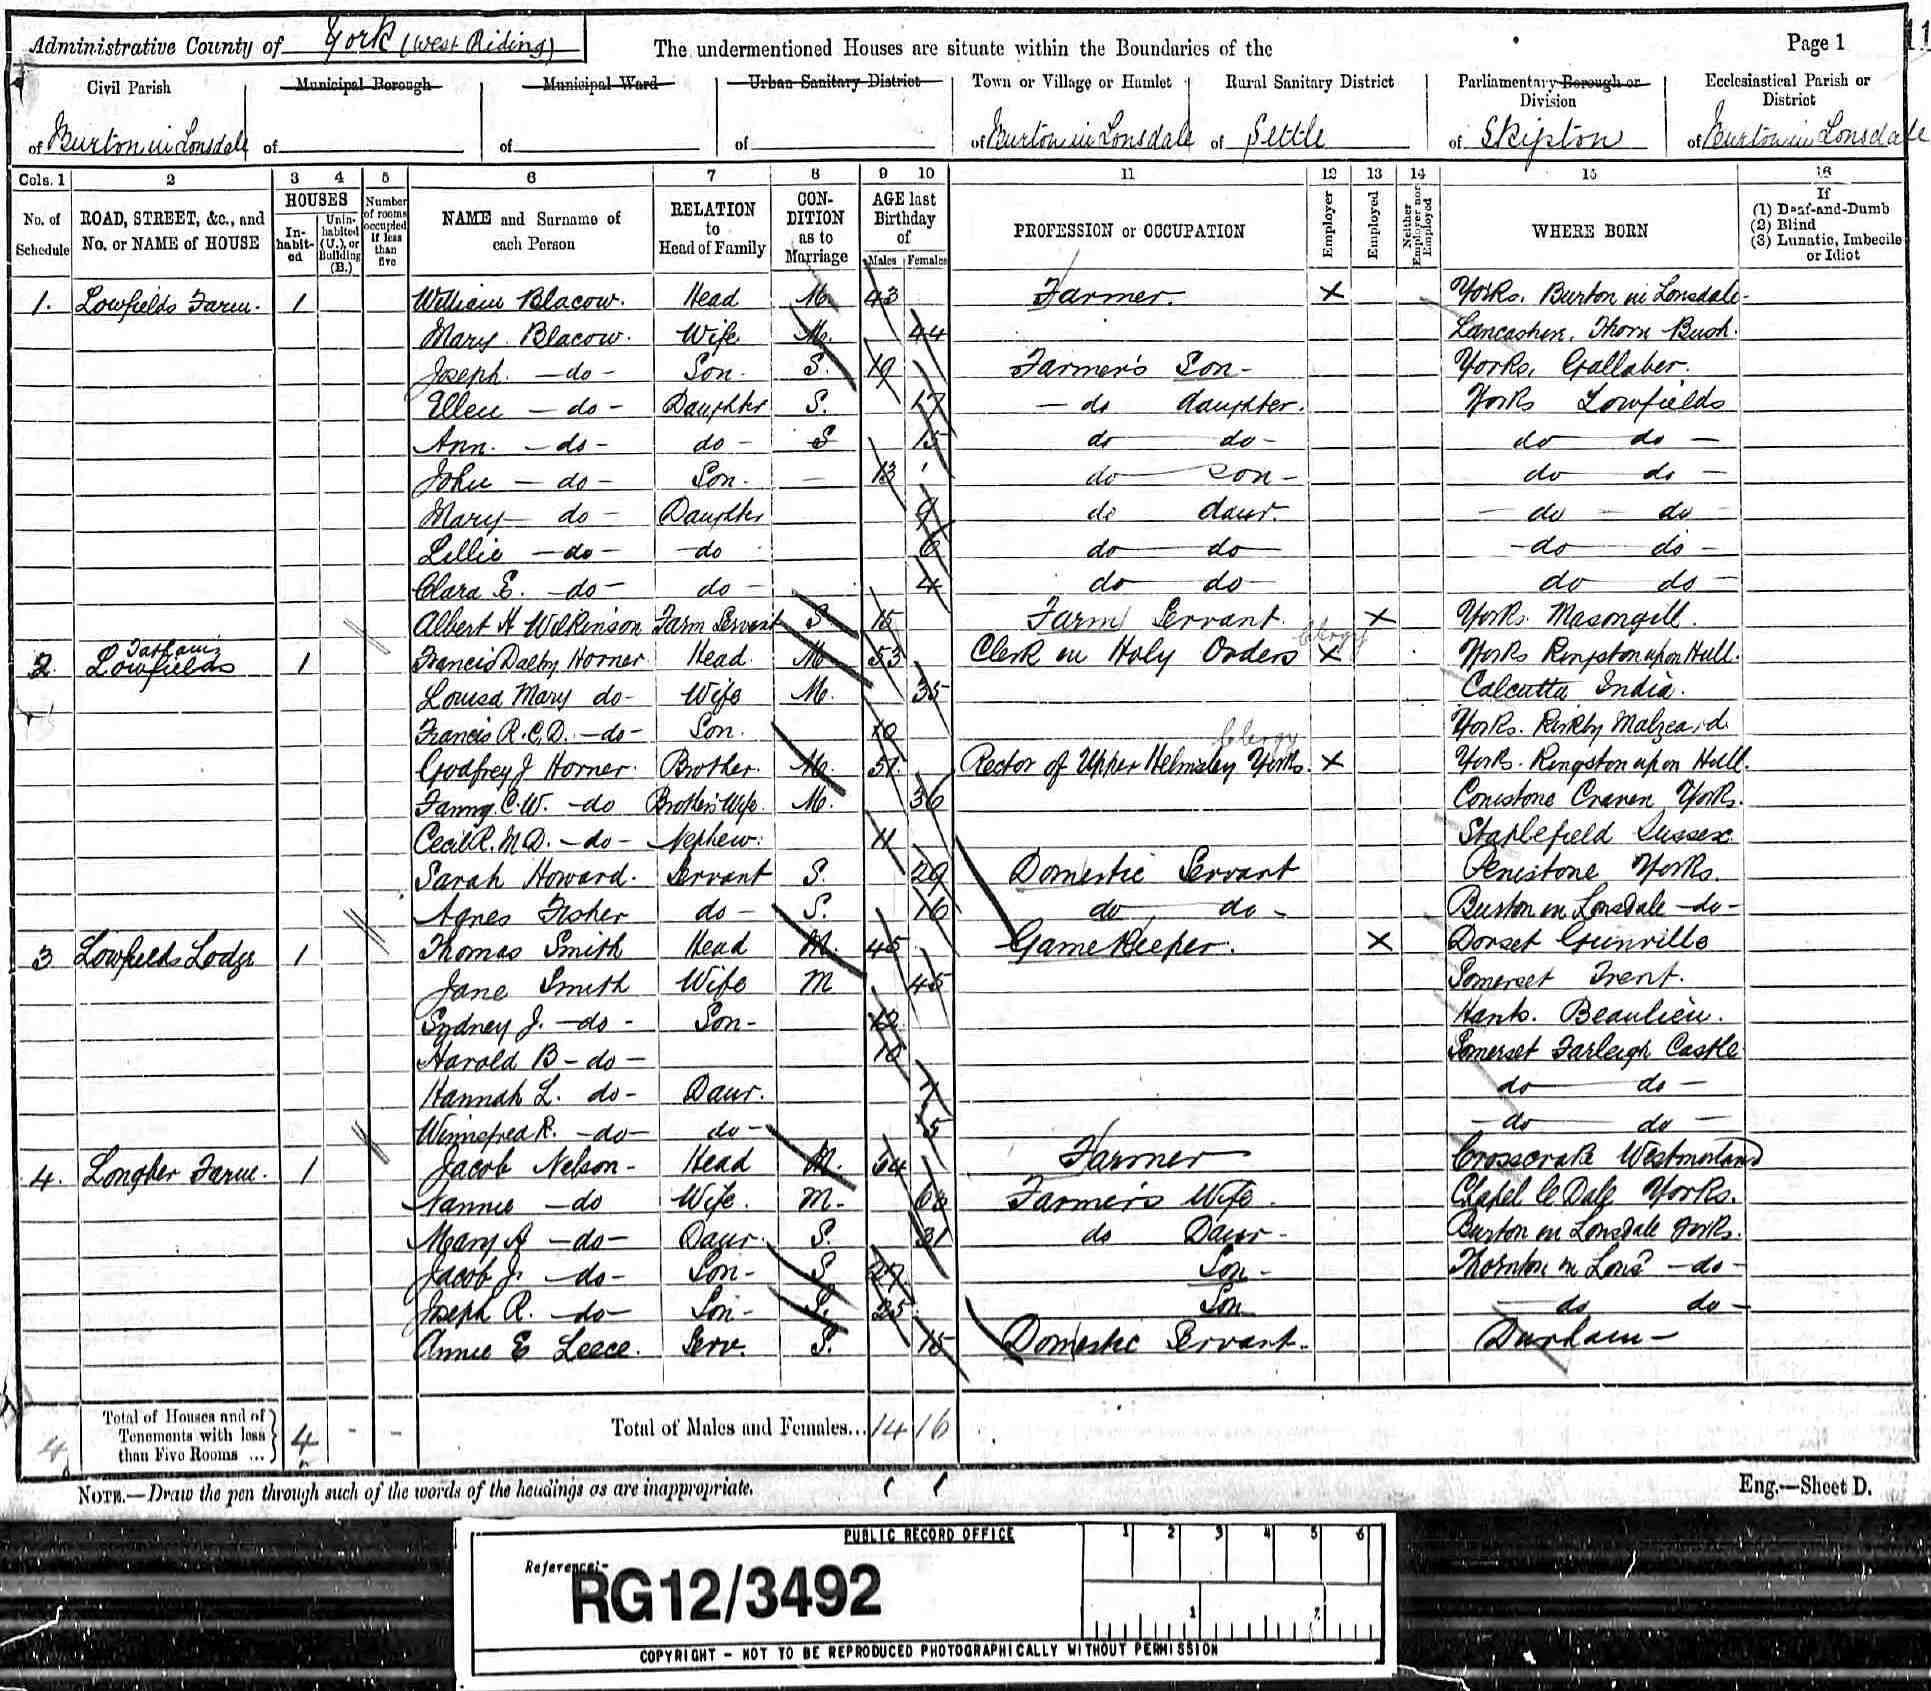 Administrative County of York (West Riding)
The undermentioned Houses are situate within the Boundaries of the
Page 1
11
Civil Parish of Burton in Lonsdale
Municipal Borough of
Municipal Ward of
Urban Sanitary District of
Town or Village or Hamlet of Burton in Lonsdale
Rural Sanitary District of Settle
Parliamentary Borough or Division of Skipton
Ecclesiastical Parish or District of Burton in Lonsdale
Cols. 1 2 3 4 5 6 7 8 9 10 11 12 13 14 15 16
No. of Schedule
ROAD, STREET, &c., and No. or NAME of HOUSE
HOUSES
In-habit-ed
Unin-habited (U.), or Building (B.)
Number of rooms occupied if less than five
NAME and Surname of each Person
RELATION to Head of Family
CON-DITION as to Marriage
AGE last Birthday of
Males Females
PROFESSION or OCCUPATION
Employer
Employed
Neither Employer nor Employed
WHERE BORN
If (1) Deaf-and-Dumb (2) Blind (3) Lunatic, Imbecile or Idiot
1. Lowfields Farm. 1 William Blacow. Head M. 43 Farmer. X Yorks. Burton in Lonsdale
Mary Blacow. Wife M. 44 Lancashire, Thorn Bush.
Joseph. -do- Son. S. 19 Farmer's Son- Yorks, Gallaber.
Ellen -do- Daughter S. 17 -do daughter. Yorks Lowfields
Ann. -do- do- S 15 do do- do do-
John -do- Son. - 13 do Son- do do-
Mary- do- Daughter 9 do daur. -do- do-
Lillie -do- -do 6 do do -do do-
Clara E. -do- do- 4 do do do do-
Albert H Wilkinson Farm Servant S 15 Farm Servant. X Yorks. Masongill.
2. Tathams Lowfields 1 Francis Dalby Horner Head M 53 Clerk in Holy Orders Clergy X Yorks Kingston upon Hull.
Louisa Mary do- Wife M. 35 Calcutta India.
Francis R.C.D. -do- Son. 10 Yorks. Kirkby Malzeard.
Godfrey J Horner. Brother. M. 51. Rector of Upper Helmsley Yorks. Clergy X Yorks. Kingston upon Hull.
Fanny C.W. -do Brother's Wife. M. 36 Conistone Craven Yorks.
Cecil R. M D. -do- Nephew. 11 Staplefield Sussex
Sarah Howard. Servant S. 29 Domestic Servant Penistone Yorks.
Agnes Fisher do- S. 16 do do- Burton in Lonsdale -do-
3 Lowfields Lodge 1 Thomas Smith Head M. 45 GameKeeper. X Dorset Gunville
Jane Smith Wife M 45 Somerset Trent.
Sydney J. -do- Son- 12 Hants. Beaulieu.
Harold B -do- 10 Somerset Farleigh Castle
Hannah L. do- Daur. 7 do do-
Winnifred R. -do- do- 5 -do do-
4. Longber Farm. 1 Jacob Nelson- Head M. 64 Farmer Crosscrake Westmorland
Nannie -do Wife. M. Farmer's Wife. Chapel le Dale Yorks.
Mary A -do- Daur. S. 31 do Daur- Burton in Lonsdale Yorks.
Jacob J. -do- Son- S. 27 Son- Thornton in Lons -do-
Joseph R. -do- Son- S. 25 Son do do-
Annie E Leece. Serv. S. 15 Domestic Servant. Durham-
Total of Houses and of Tenements with less than Five Rooms ... 4 - -
Total of Males and Females... 14 16
NOTE.—Draw the pen through such of the words of the headings as are inappropriate.
Eng.—Sheet D.
PUBLIC RECORD OFFICE
1 2 3 4 5 6
Reference:-
RG12/3492
1 2
COPYRIGHT - NOT TO BE REPRODUCED PHOTOGRAPHICALLY WITHOUT PERMISSION